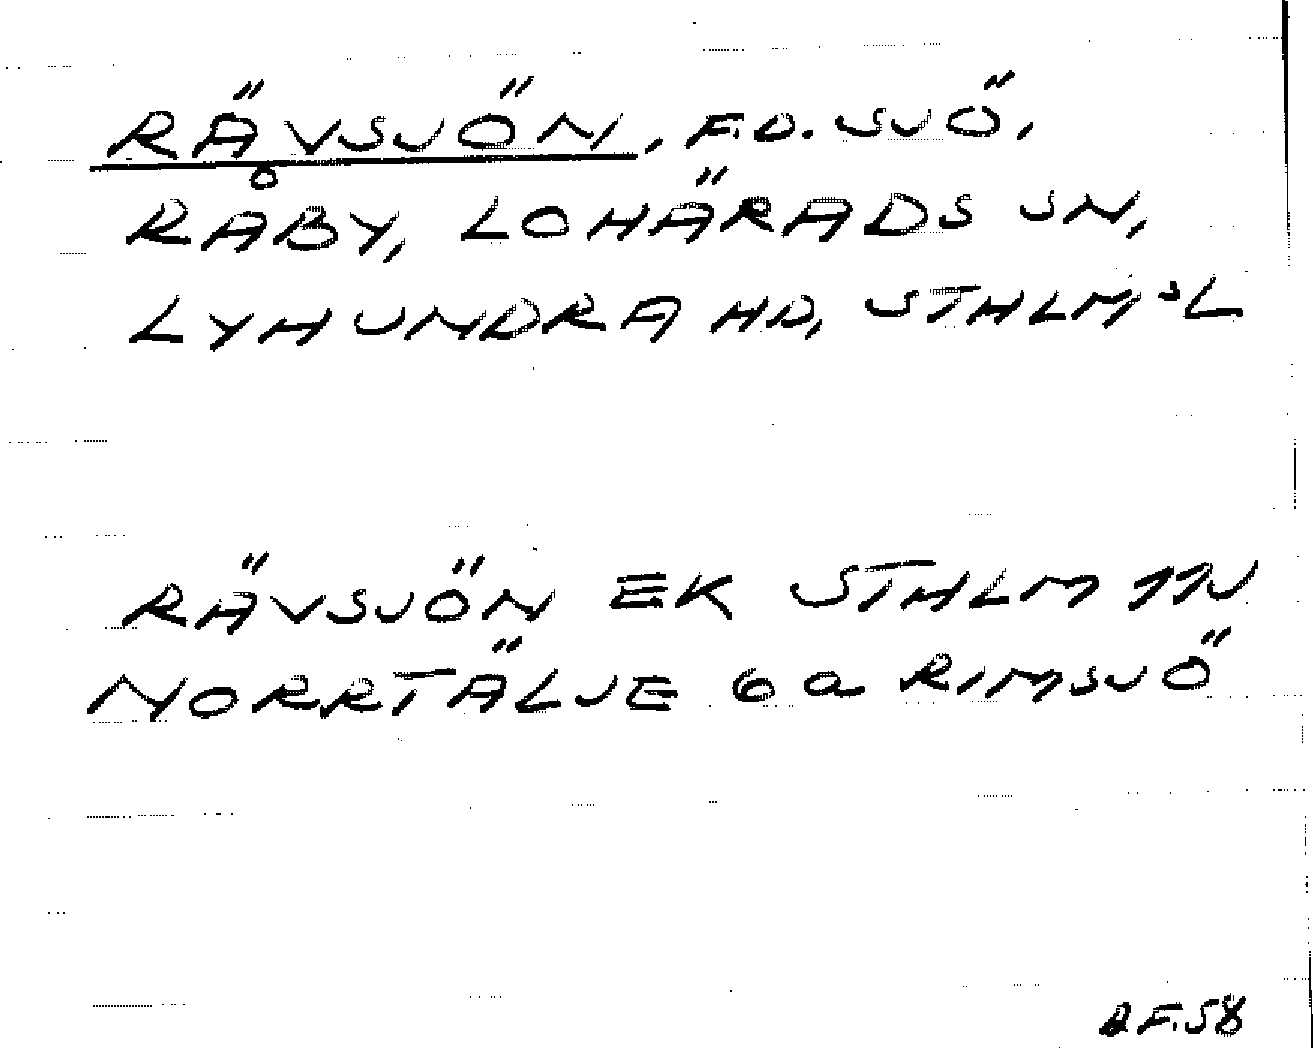 RÄVSJÖN, F.D. SJÖ,
RÅBY, LOHÄRADS SN,
LYHUNDRA HD, STHLMSL
RÄVSJÖN EK STHLM 11N
NORRTÄLJE 6a RIMSJÖ